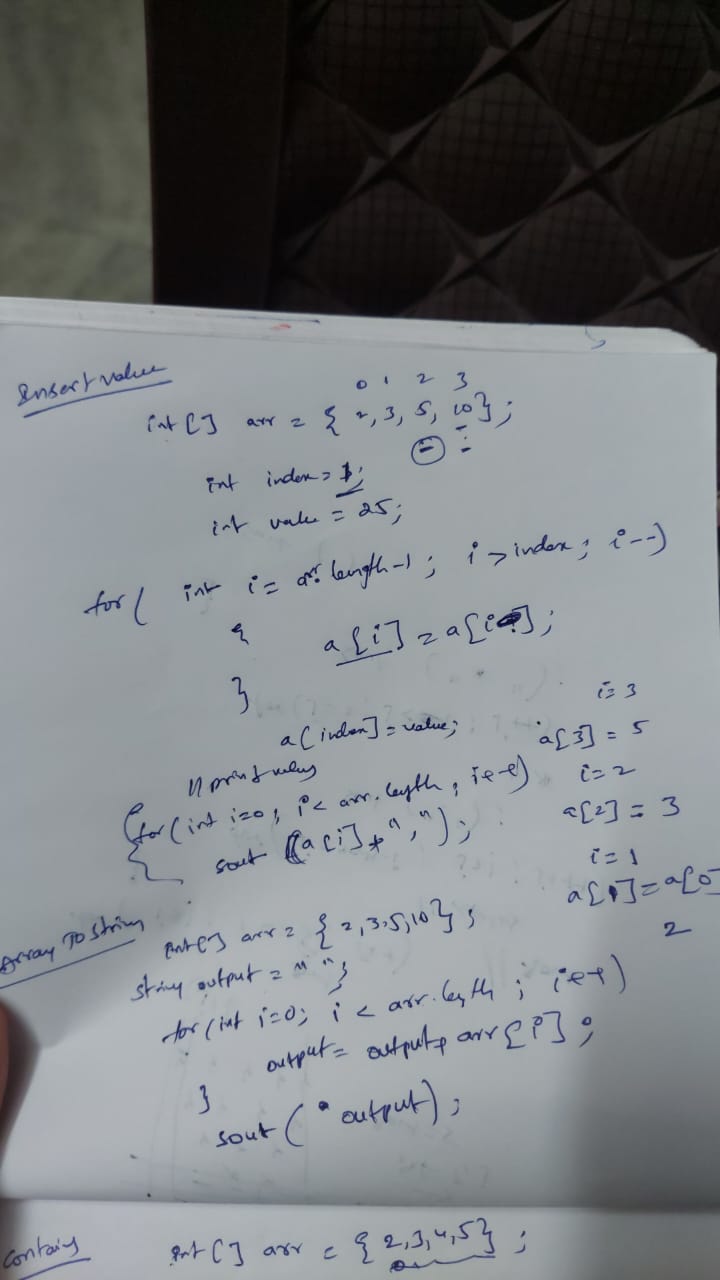 Insert value
0 1 2 3
int [] arr = { 2, 3, 5, 10};
int index = 1;
int value = 25;
for ( int i = arr.length-1 ; i > index ; i--)
{
a[i] = a[i
];
}
a[index] = value;
// print
for (int i=0; i < arr.length ; i++)
{
sout (a[i]+",");
i=3
a[3] = 5
i=2
a[2] = 3
i=1
a[1]=a[0
2
Array To String
int[] arr = { 2,3,5,10};
String output = " ";
for (int i=0; i < arr.length ; i++)
output = output + arr[i];
}
sout ( output);
Contains
int [] arr = { 2,3,4,5};